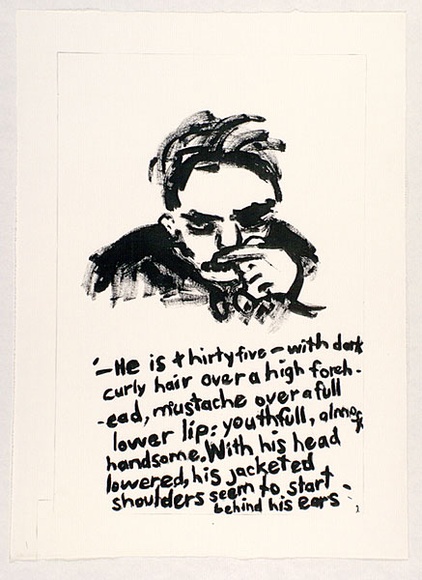 '—He is thirtyfive—with dark
curly hair over a high foreh-
-ead, mustache over a full
lower lip: youthfull, almost
handsome. With his head
lowered, his jacketed
shoulders seem to start
behind his ears